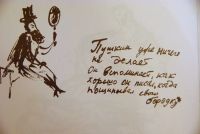 Пушкин уже ничего
не делает
Он вспоминает, как
хорошо он писал, когда
пощипывал свою
бородку